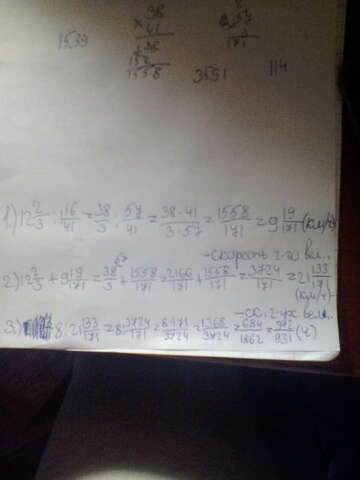 1539
38
× 41
+ 38
152
1558
57
3
171
3591
114
1) 12 2/3 : 1 16/41 = 38/3 : 57/41 = 38·41/3·57 = 1558/171 = 9 19/171 (км/ч)
- скорость 2-го вел.
2) 12 2/3 + 9 19/171 = 38/3 + 1558/171 = 2166/171 + 1558/171 = 3724/171 = 21 133/171
(км/ч)
- ск. 2-ух вел.
3) 8 : 21 133/171 = 8 : 3724/171 = 8·171/3724 = 1368/3724 = 684/1862 = 342/931 (ч)